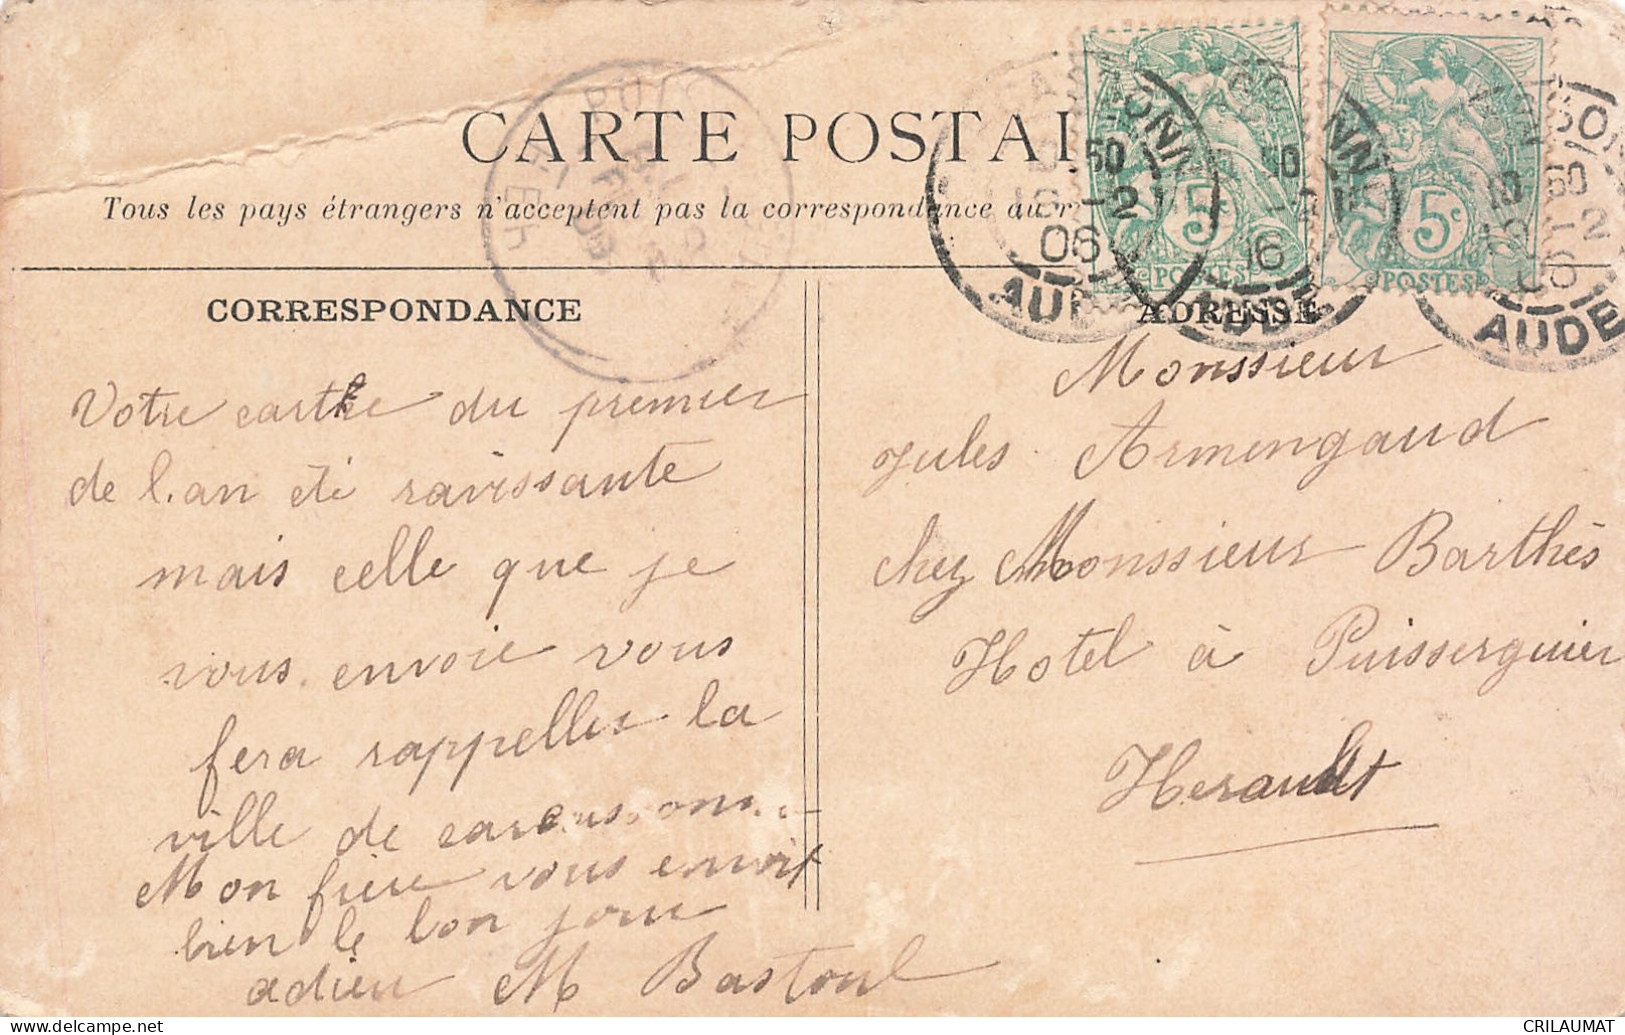 CARTE POSTAL
Tous les pays étrangers n'acceptent pas la correspondance au r
CORRESPONDANCE
ADRESSE
Votre carthe du premier
de l.an eté ravissante
mais celle que je
vous envoie vous
fera rappeller la
ville de
Mon frere vous envoit
bien le bon jour
adieu M Bastoul
Monssieur
Jules Armengaud
chez Monssieur Barthés
Hotel à Puisserguier
Herault
5c
POSTES
5c
POSTES
06
AUDE
AUDE
CRILAUMAT